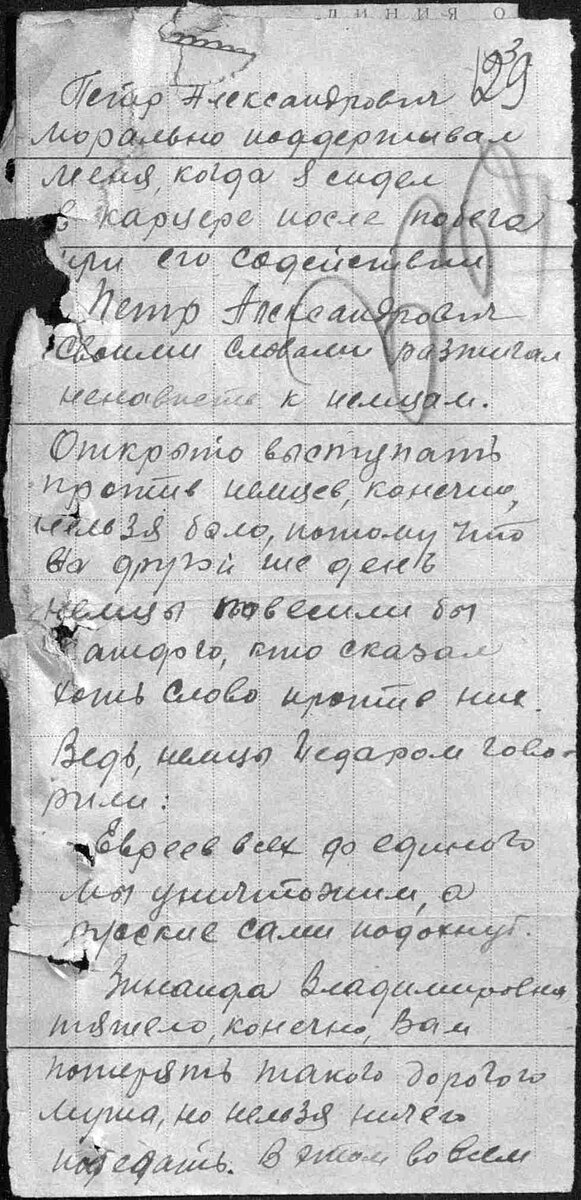 линия о
239
Петр Александрович
морально поддерживал
меня, когда я сидел
в карцере после побега
при его содействии
Петр Александрович
своими словами разжигал
ненависть к немцам.
Открыто выступать
против немцев, конечно,
нельзя было, потому что
на другой же день
немцы повесили бы
каждого, кто сказал
хоть слово против них.
Ведь, немцы недаром гово-
рили:
Евреев всех до единого
мы уничтожим, а
русские сами подохнут.
Зинаида Владимировна
тяжело, конечно, Вам
потерять такого дорогого
мужа, но нельзя ничего
поделать. В этом во всем